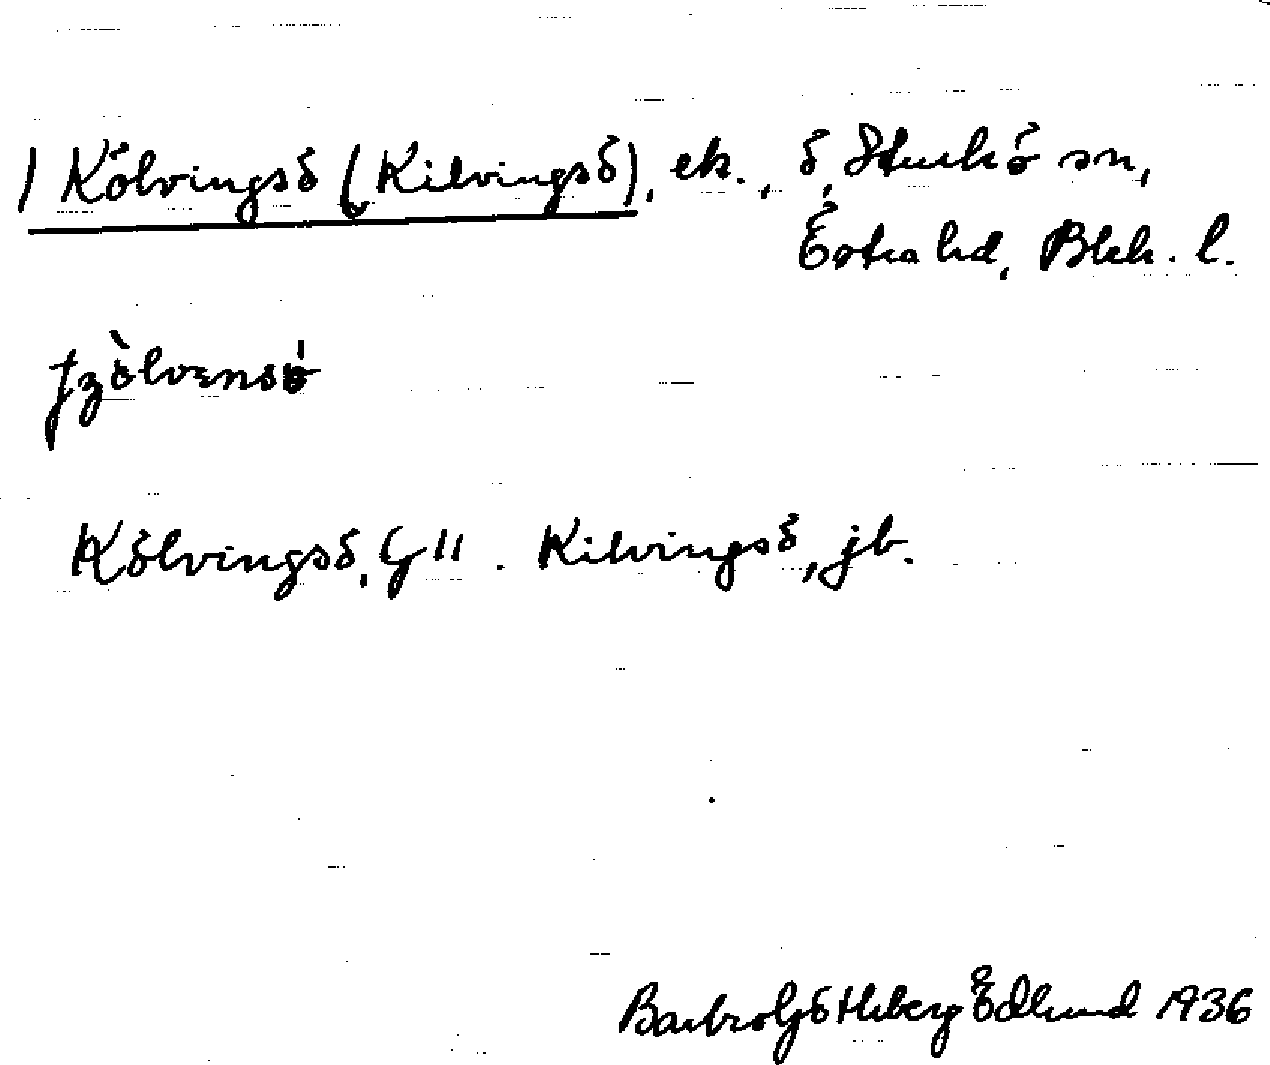 1 Kölvingsö (Kilvingsö), ek., ö, Sturkö sn,
Östra hd, Blek. l.
Kölvingsö, G 11. Kilvingsö, jb.
Barbro Götlberg Edlund 1936